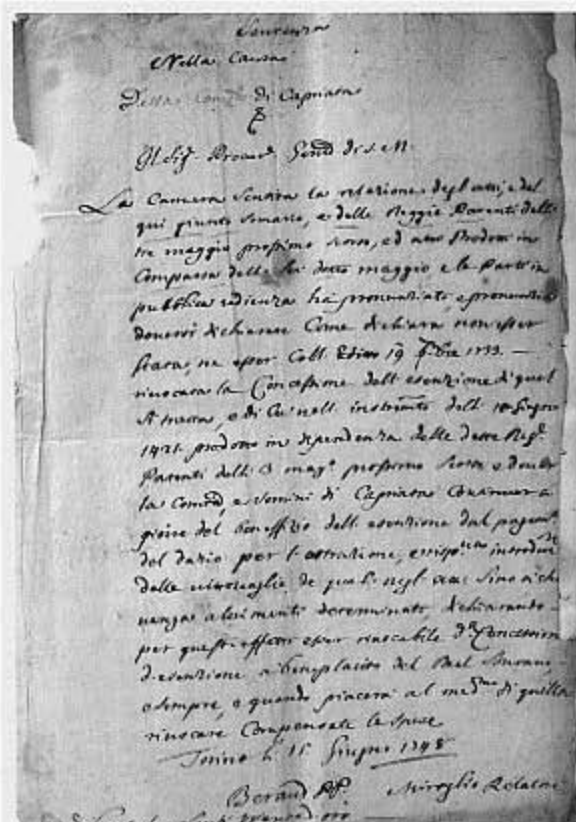 Sentenza
Nella Causa
Della Comtà di Capriata
Il Sigr Procurr Genle di S. M.
La Camera Sentita la relazione degl'atti, e del
qui giunto Smario, e delle Reggie Patenti delli
tre maggio prossimo scorso, ed atto Prodotti in
Comparsa delli sei detto maggio e le Parti in
pubblica udienza ha pronunziato, e pronunzia
doversi dichiarare Come dichiara non esser
stata, ne esser Coll' Editto 19 7bre 1733. —
rivocata la Concessione dell'esenzione di quel
si tratta, e di Cui nell'instromto dell' Giugno
prodotto in dipendenza delle dette Regie
Patenti delli 3 magº prossimo scorso e dover
la Comtà, e Uomini di Capriata Continuar a
gioire del beneffizio dell'esenzione dal pagamto
del dazio per l'estrazione, e rispmte introduzne
delle vittovaglie de quali negl'atti Sino a che
venga altrimenti determinato, dichiarando
per questi effetti esser rivocabile da Concessione
d'esenzione a beneplacito del Real Sovrano,
e sempre, e quando piacerà al medmo di quella
rivocare Compensate le spese
Torino li 15 Giugno 1748
Beraud PP. Miroglio Relatore